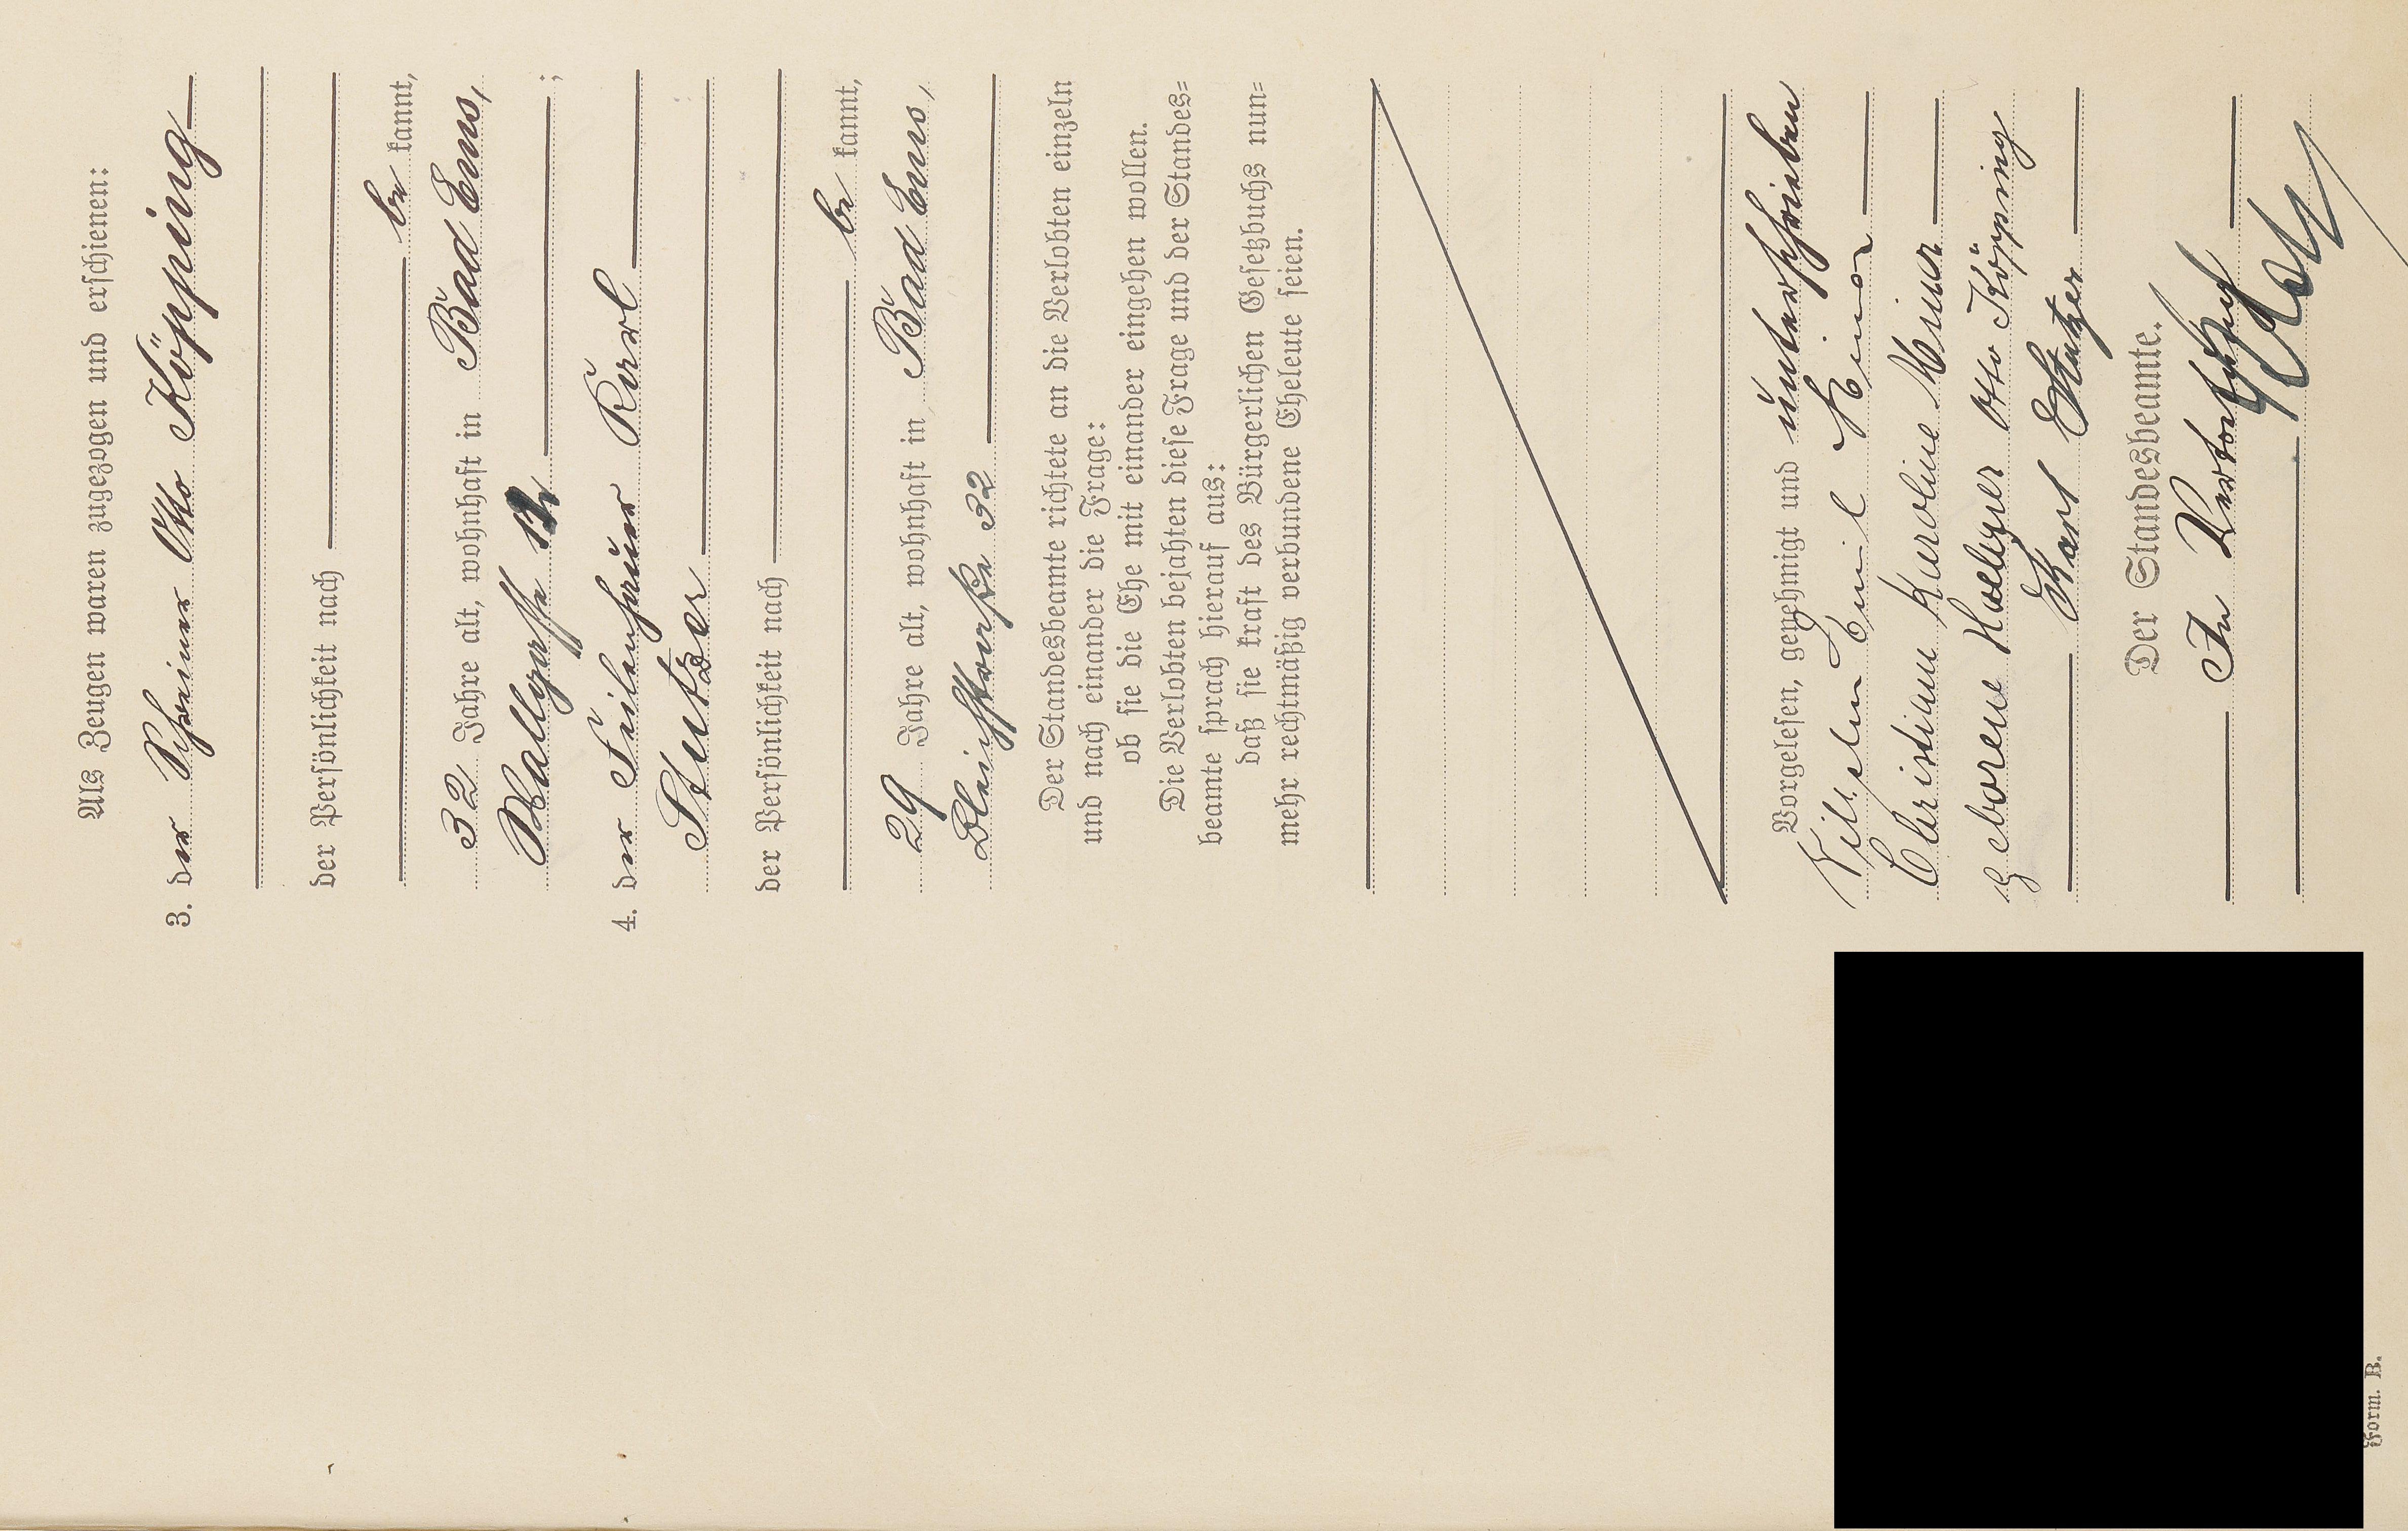 Als Zeugen waren zugezogen und erschienen:
3. der Schreiner Otto Köpping
der Persönlichkeit nach
be kannt,
32 Jahre alt, wohnhaft in Bad Ems,
Wallgasse
;
4. der Feilenhauer Karl
Stutzer
der Persönlichkeit nach
be kannt,
29 Jahre alt, wohnhaft in Bad Ems,
Bleichstraße 32
Der Standesbeamte richtete an die Verlobten einzeln
und nach einander die Frage:
ob sie die Ehe mit einander eingehen wollen.
Die Verlobten bejahten diese Frage und der Standes=
beamte sprach hierauf aus:
daß sie kraft des Bürgerlichen Gesetzbuchs nun=
mehr rechtmäßig verbundene Eheleute seien.
Vorgelesen, genehmigt und unterschrieben
Wilhelm Emil
Christiane Karoline
geborene Otto Köpping
Karl Stutzer
Der Standesbeamte.
In Vertretung
Form. B.